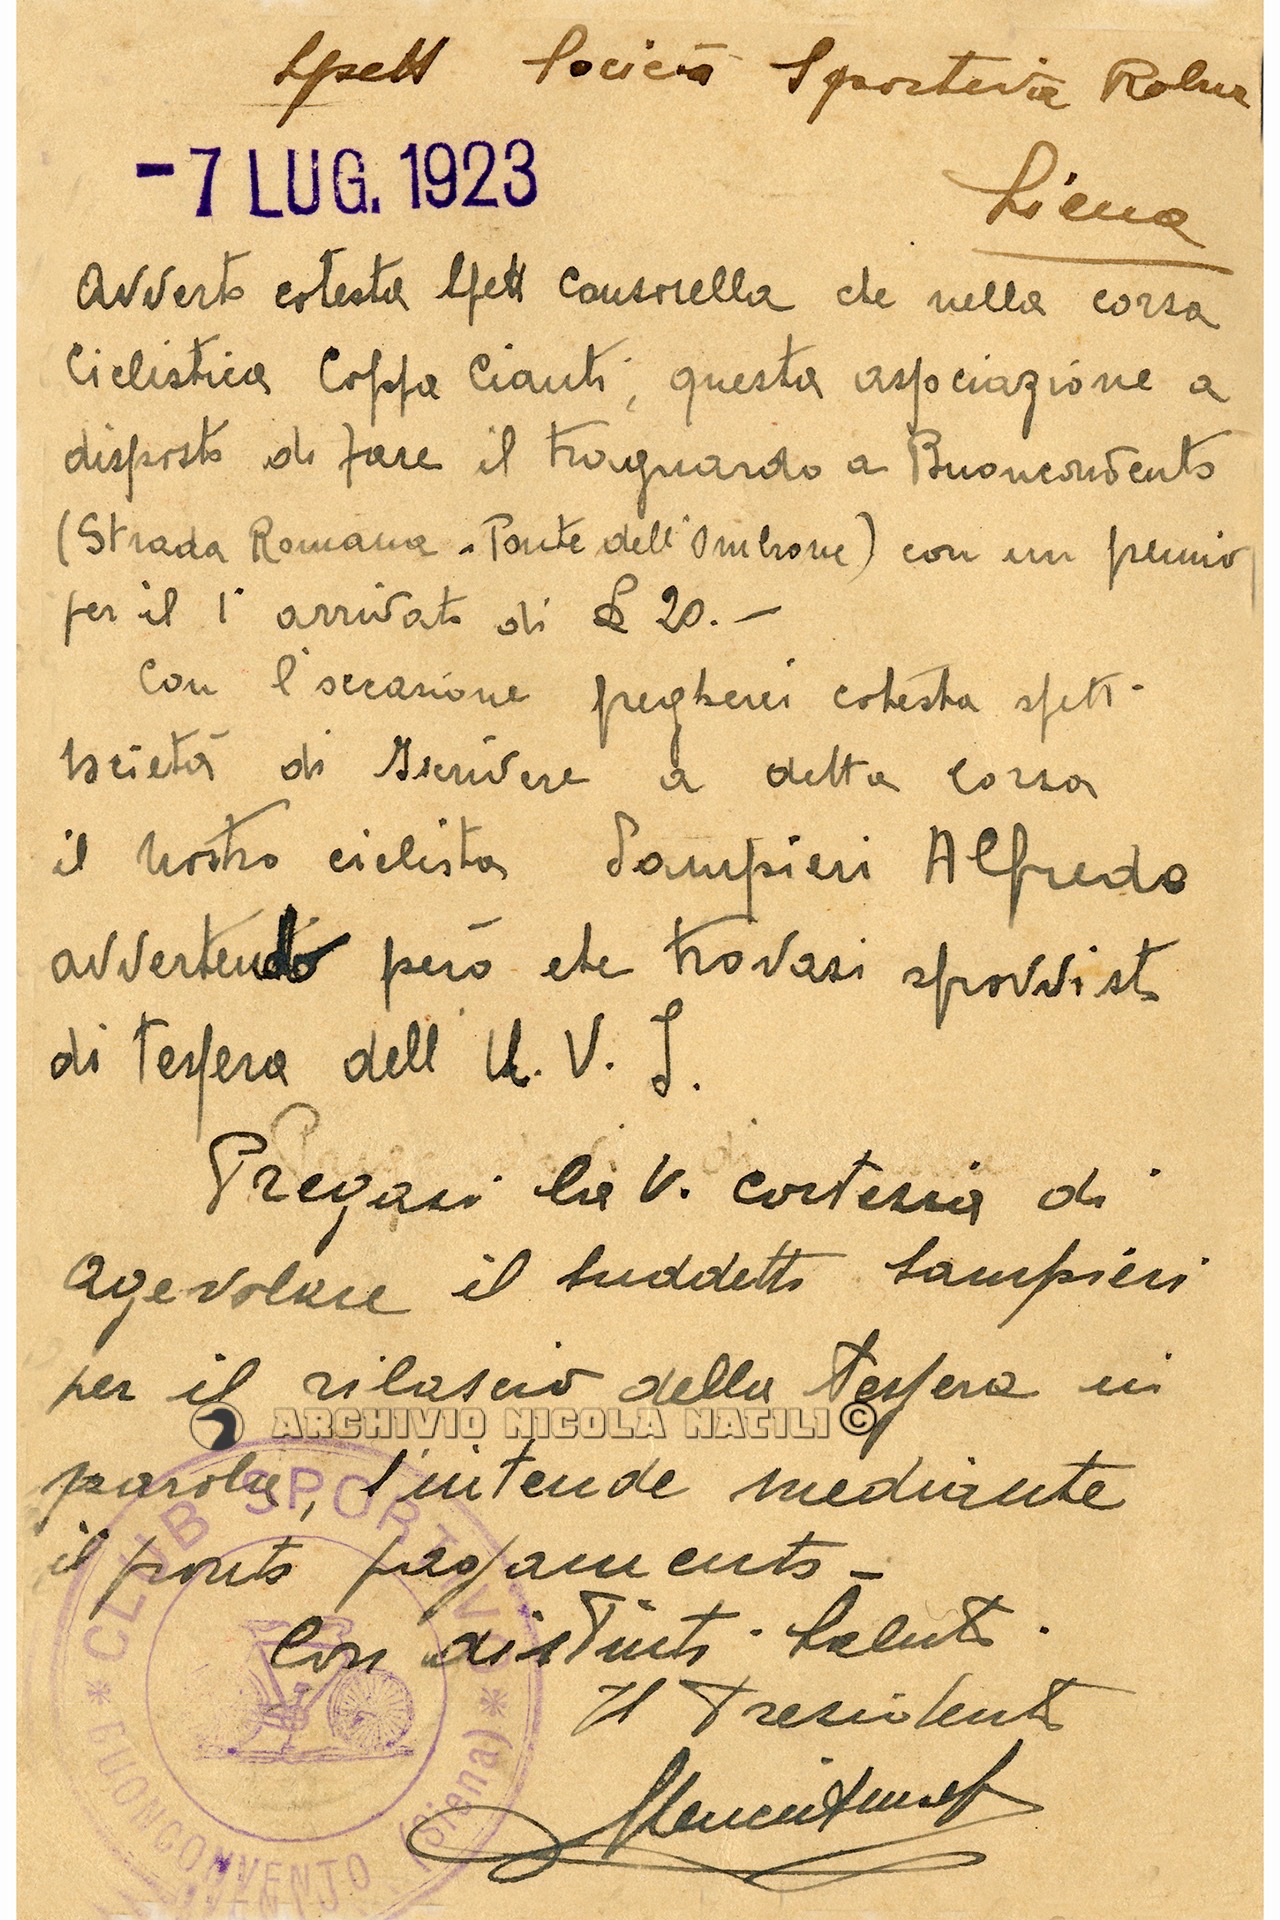 Spett Società Sportiva Robur
Siena
-7 LUG. 1923
Avverto cotesta Spett Consorella che nella corsa
Ciclistica Coppa Cianti, questa associazione a
disposto di fare il traguardo a Buonconvento
(Strada Romana - Ponte dell'Ombrone) con un premio
per il 1° arrivato di £ 20.-
Con l'occasione pregherei cotesta spett.
società di Iscrivere a detta corsa
il nostro ciclista Sampieri Alfredo
avvertendo però che trovasi sprovvisto
di Tessera dell U. V. I.
Pregasi la V. cortesia di
agevolare il suddetto Sampieri
per il rilascio della tessera in
parola, s'intende mediante
il pronto pagamento -
Con distinti Saluti.
Il Presidente
ARCHIVIO NICOLA NATILI ©
CLUB SPORTIVO
* BUONCONVENTO (Siena) *